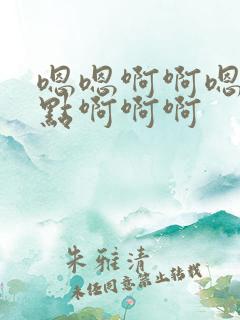 嗯嗯啊啊嗯
點啊啊啊
朱雅清
未经同意禁止转载